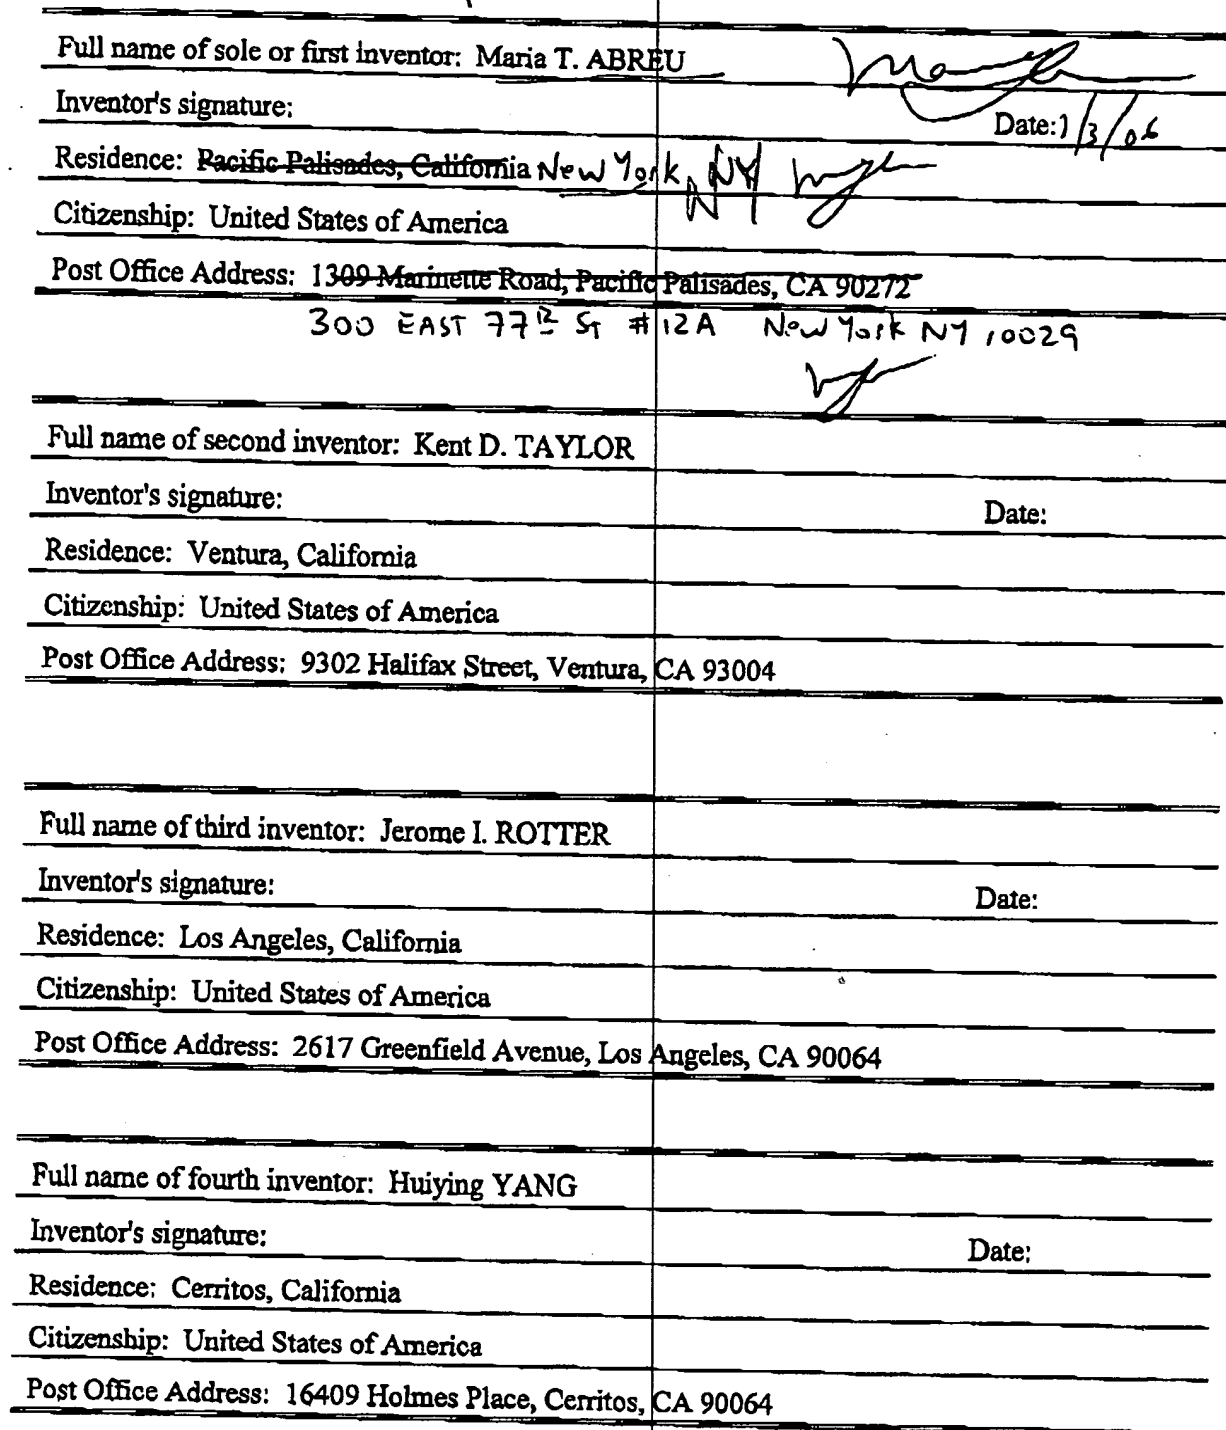 Full name of sole or first inventor: Maria T. ABREU
Inventor's signature:
Date: 1/3/06
Residence: Pacific Palisades, California New York, NY NY
Citizenship: United States of America
Post Office Address: 1309 Marinette Road, Pacific Palisades, CA 90272
300 EAST 77th St #12A New York NY 10029
Full name of second inventor: Kent D. TAYLOR
Inventor's signature: Date:
Residence: Ventura, California
Citizenship: United States of America
Post Office Address: 9302 Halifax Street, Ventura, CA 93004
Full name of third inventor: Jerome I. ROTTER
Inventor's signature: Date:
Residence: Los Angeles, California
Citizenship: United States of America
Post Office Address: 2617 Greenfield Avenue, Los Angeles, CA 90064
Full name of fourth inventor: Huiying YANG
Inventor's signature: Date:
Residence: Cerritos, California
Citizenship: United States of America
Post Office Address: 16409 Holmes Place, Cerritos, CA 90064